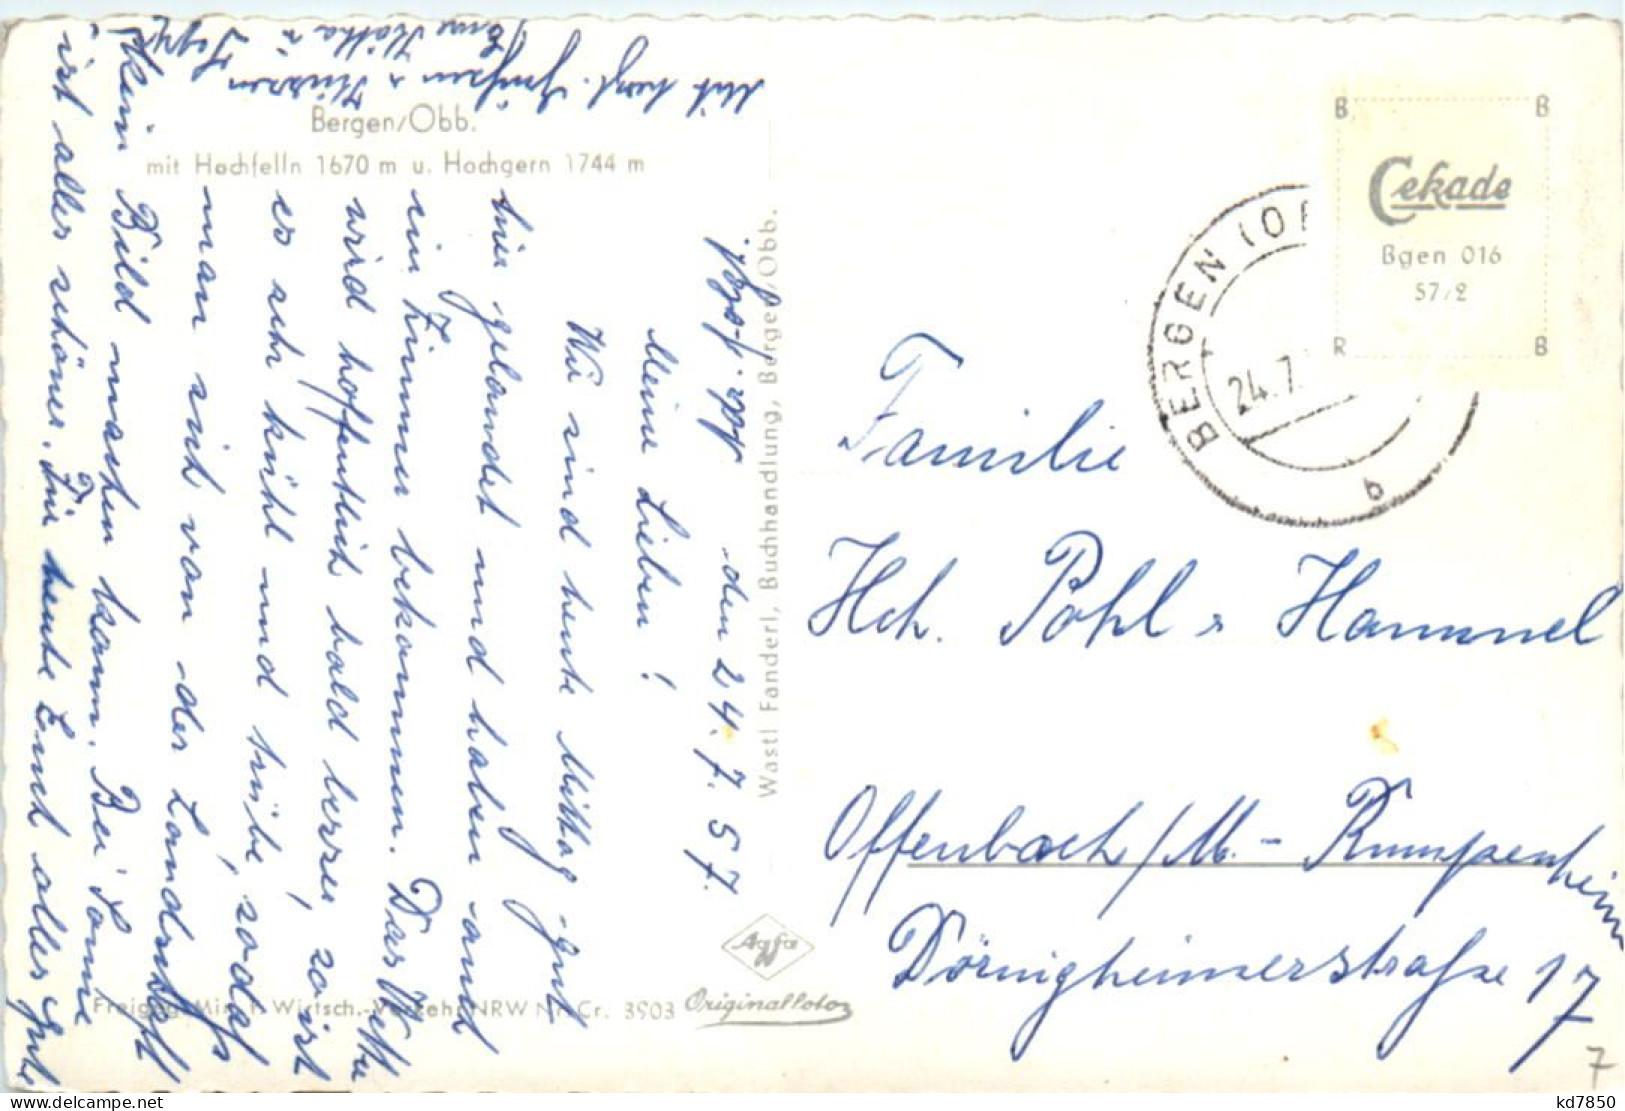 Bergen/Obb.
mit Hochfelln 1670 m u. Hochgern 1744 m
den 24.7.57.
Meine Lieben!
Wir sind heute Mittag gut
hier gelandet und haben auch
ein Zimmer bekommen. Das Wetter
wird hoffentlich bald besser, so ist
es sehr kühl und trübe, sodass
man sich von der Landschaft
kein Bild machen kann. Bei Sonne
ist alles schöner. Für heute Euch alles Gute
Mit herzl. Grüßen u. Küssen
Eure Kätha u.
Wastl Fanderl, Buchhandlung, Bergen/Obb.
Agfa
Originalfoto
Freigeg. Min. f. Wirtsch.-Verkehr NRW Nr. Cr. 3903
BERGEN (OB
24.7.
b
B B
Cekade
Bgen 016
57/2
R B
Familie
Hch. Pohl u Hammel
Offenbach/M.-Rumpenheim
Dörnigheimerstraße 17
7
kd7850